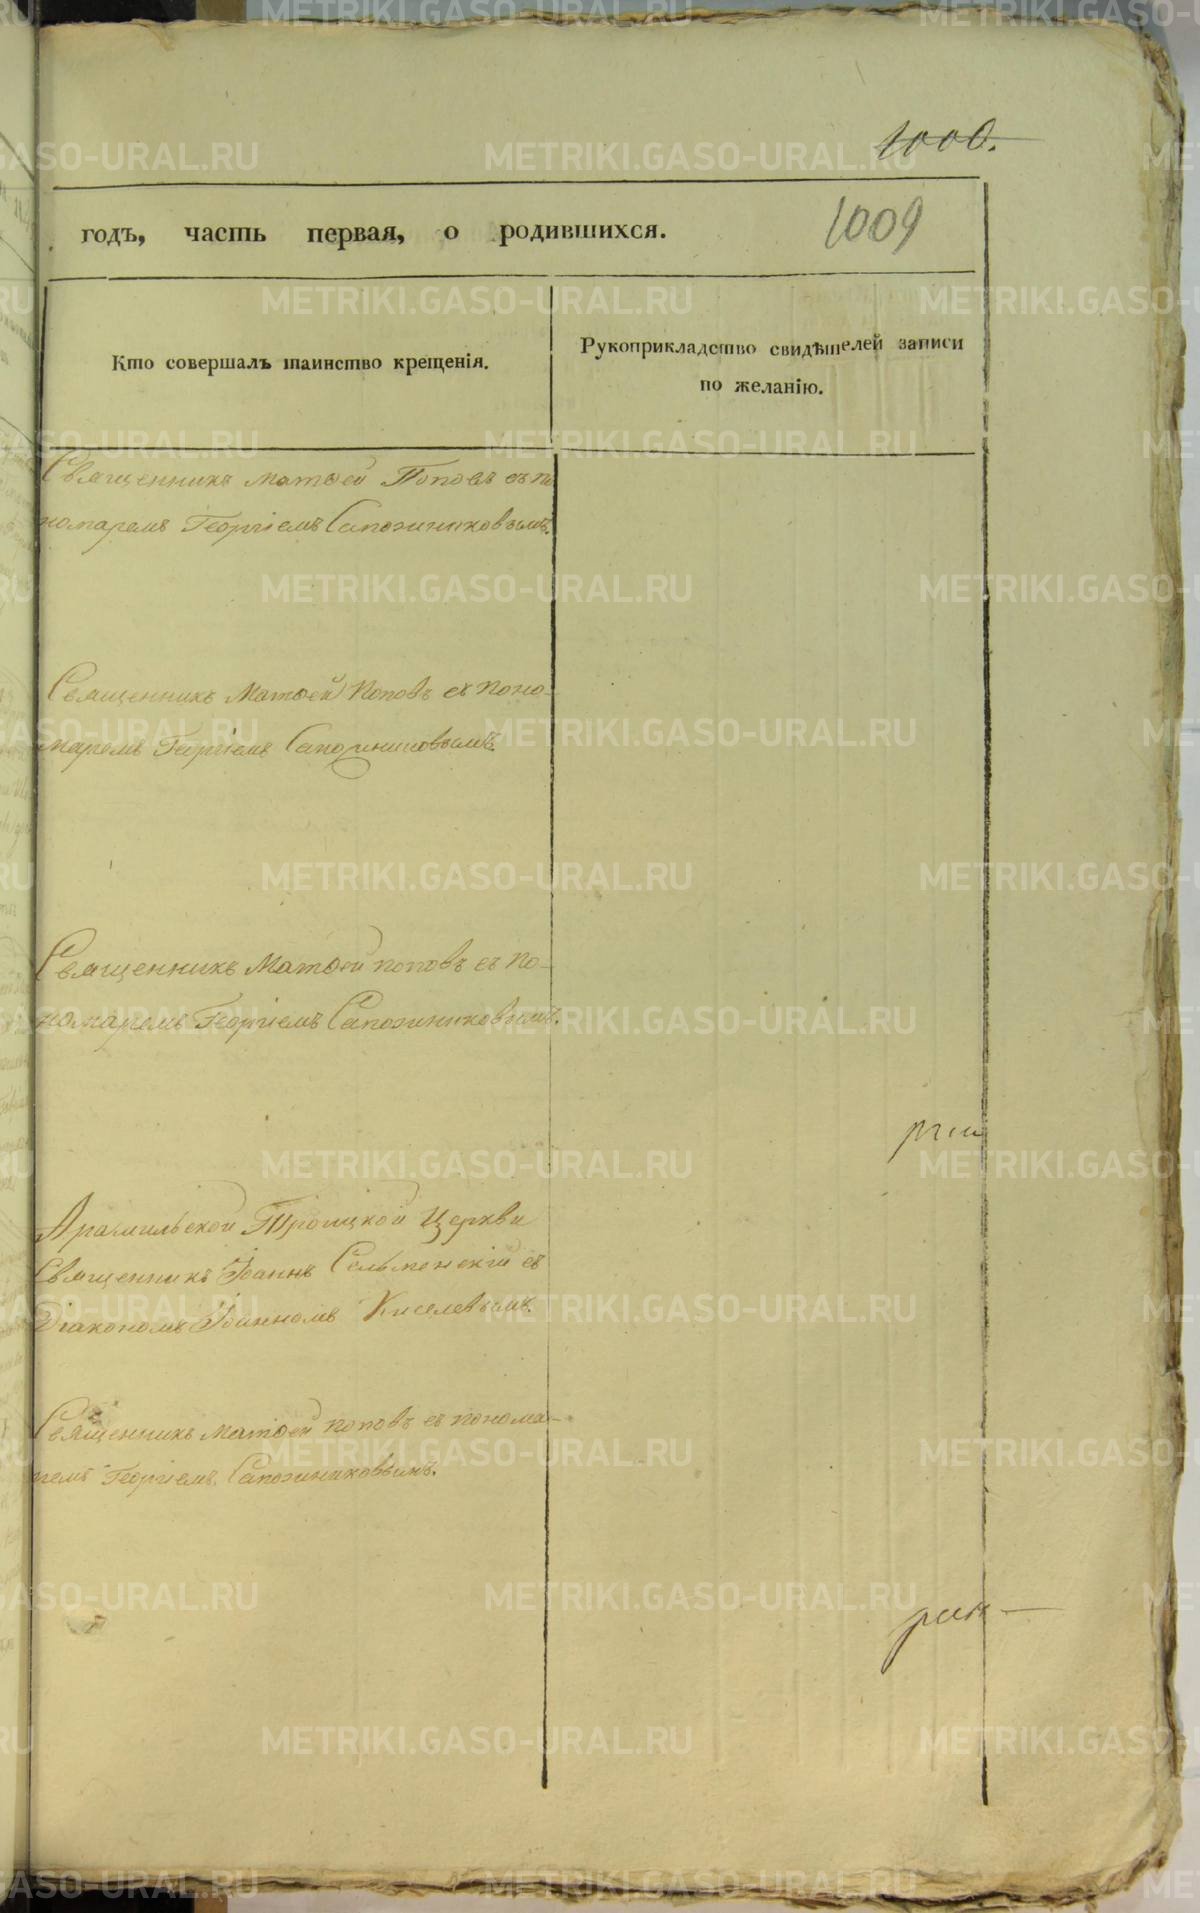 1000.
годъ, часть первая, о родившихся.
1009
Кто совершалъ таинство крещенія.
Рукоприкладство свидѣтелей записи
по желанію.
Священникъ Матѳей Поповъ съ по
номаремъ Георгіемъ Сапожниковымъ.
Священникъ Матѳей Поповъ съ поно-
маремъ Георгіемъ Сапожниковымъ.
Священникъ Матѳей Поповъ съ по-
номаремъ Георгіемъ Сапожниковымъ.
Арамильской Троицкой Церкви
Священникъ Іоаннъ Сельменскій съ
Діакономъ Іоанномъ Киселевымъ.
Священникъ Матѳей Поповъ съ понома-
ремъ Георгіемъ Сапожниковымъ.
METRIKI.GASO-URAL.RU